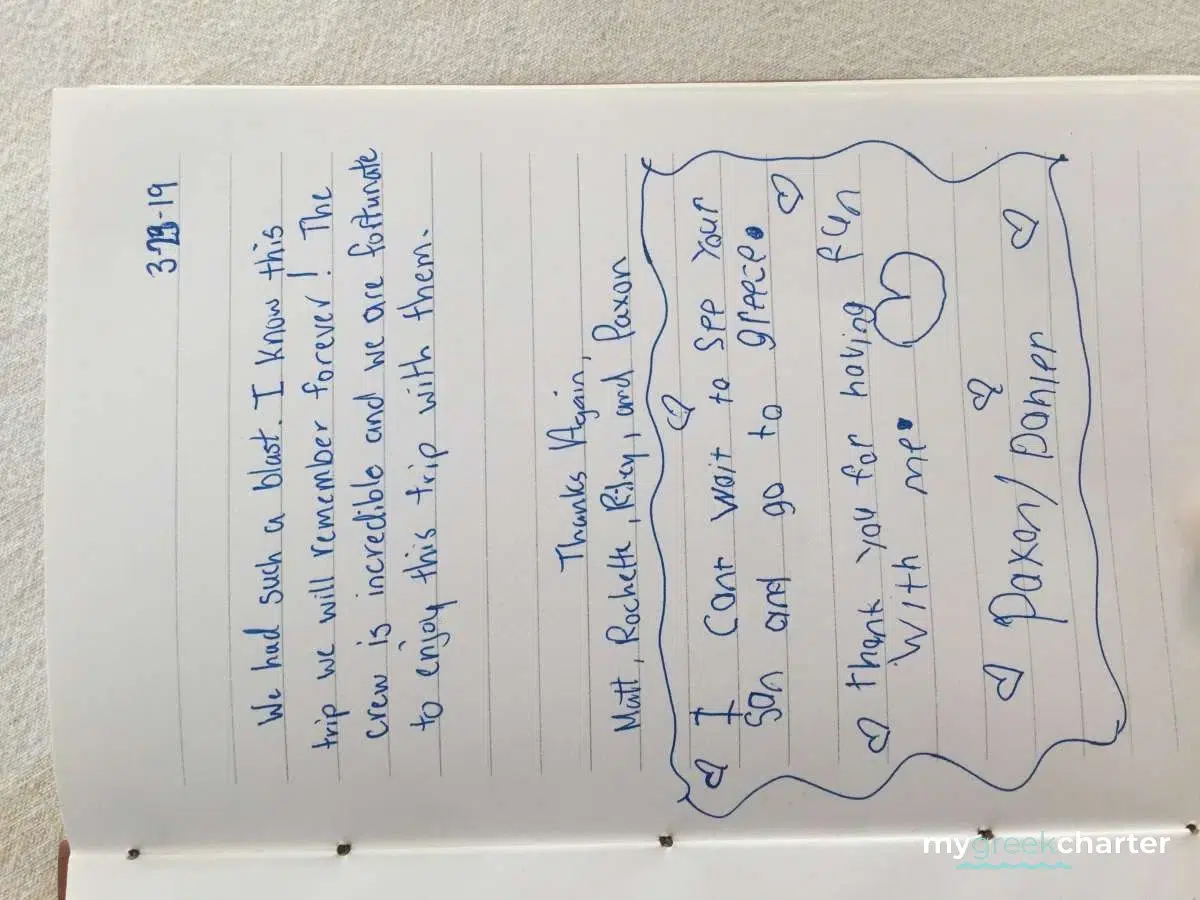 3-29-19
We had such a blast. I know this
trip we will remember forever! The
crew is incredible and we are fortunate
to enjoy this trip with them.
Thanks Again,
Matt, Rochelle, Riley, and Paxon
I Cant wait to see your
San and go to greece.
thank you for having fun
with me.
Paxon/
mygreekcharter